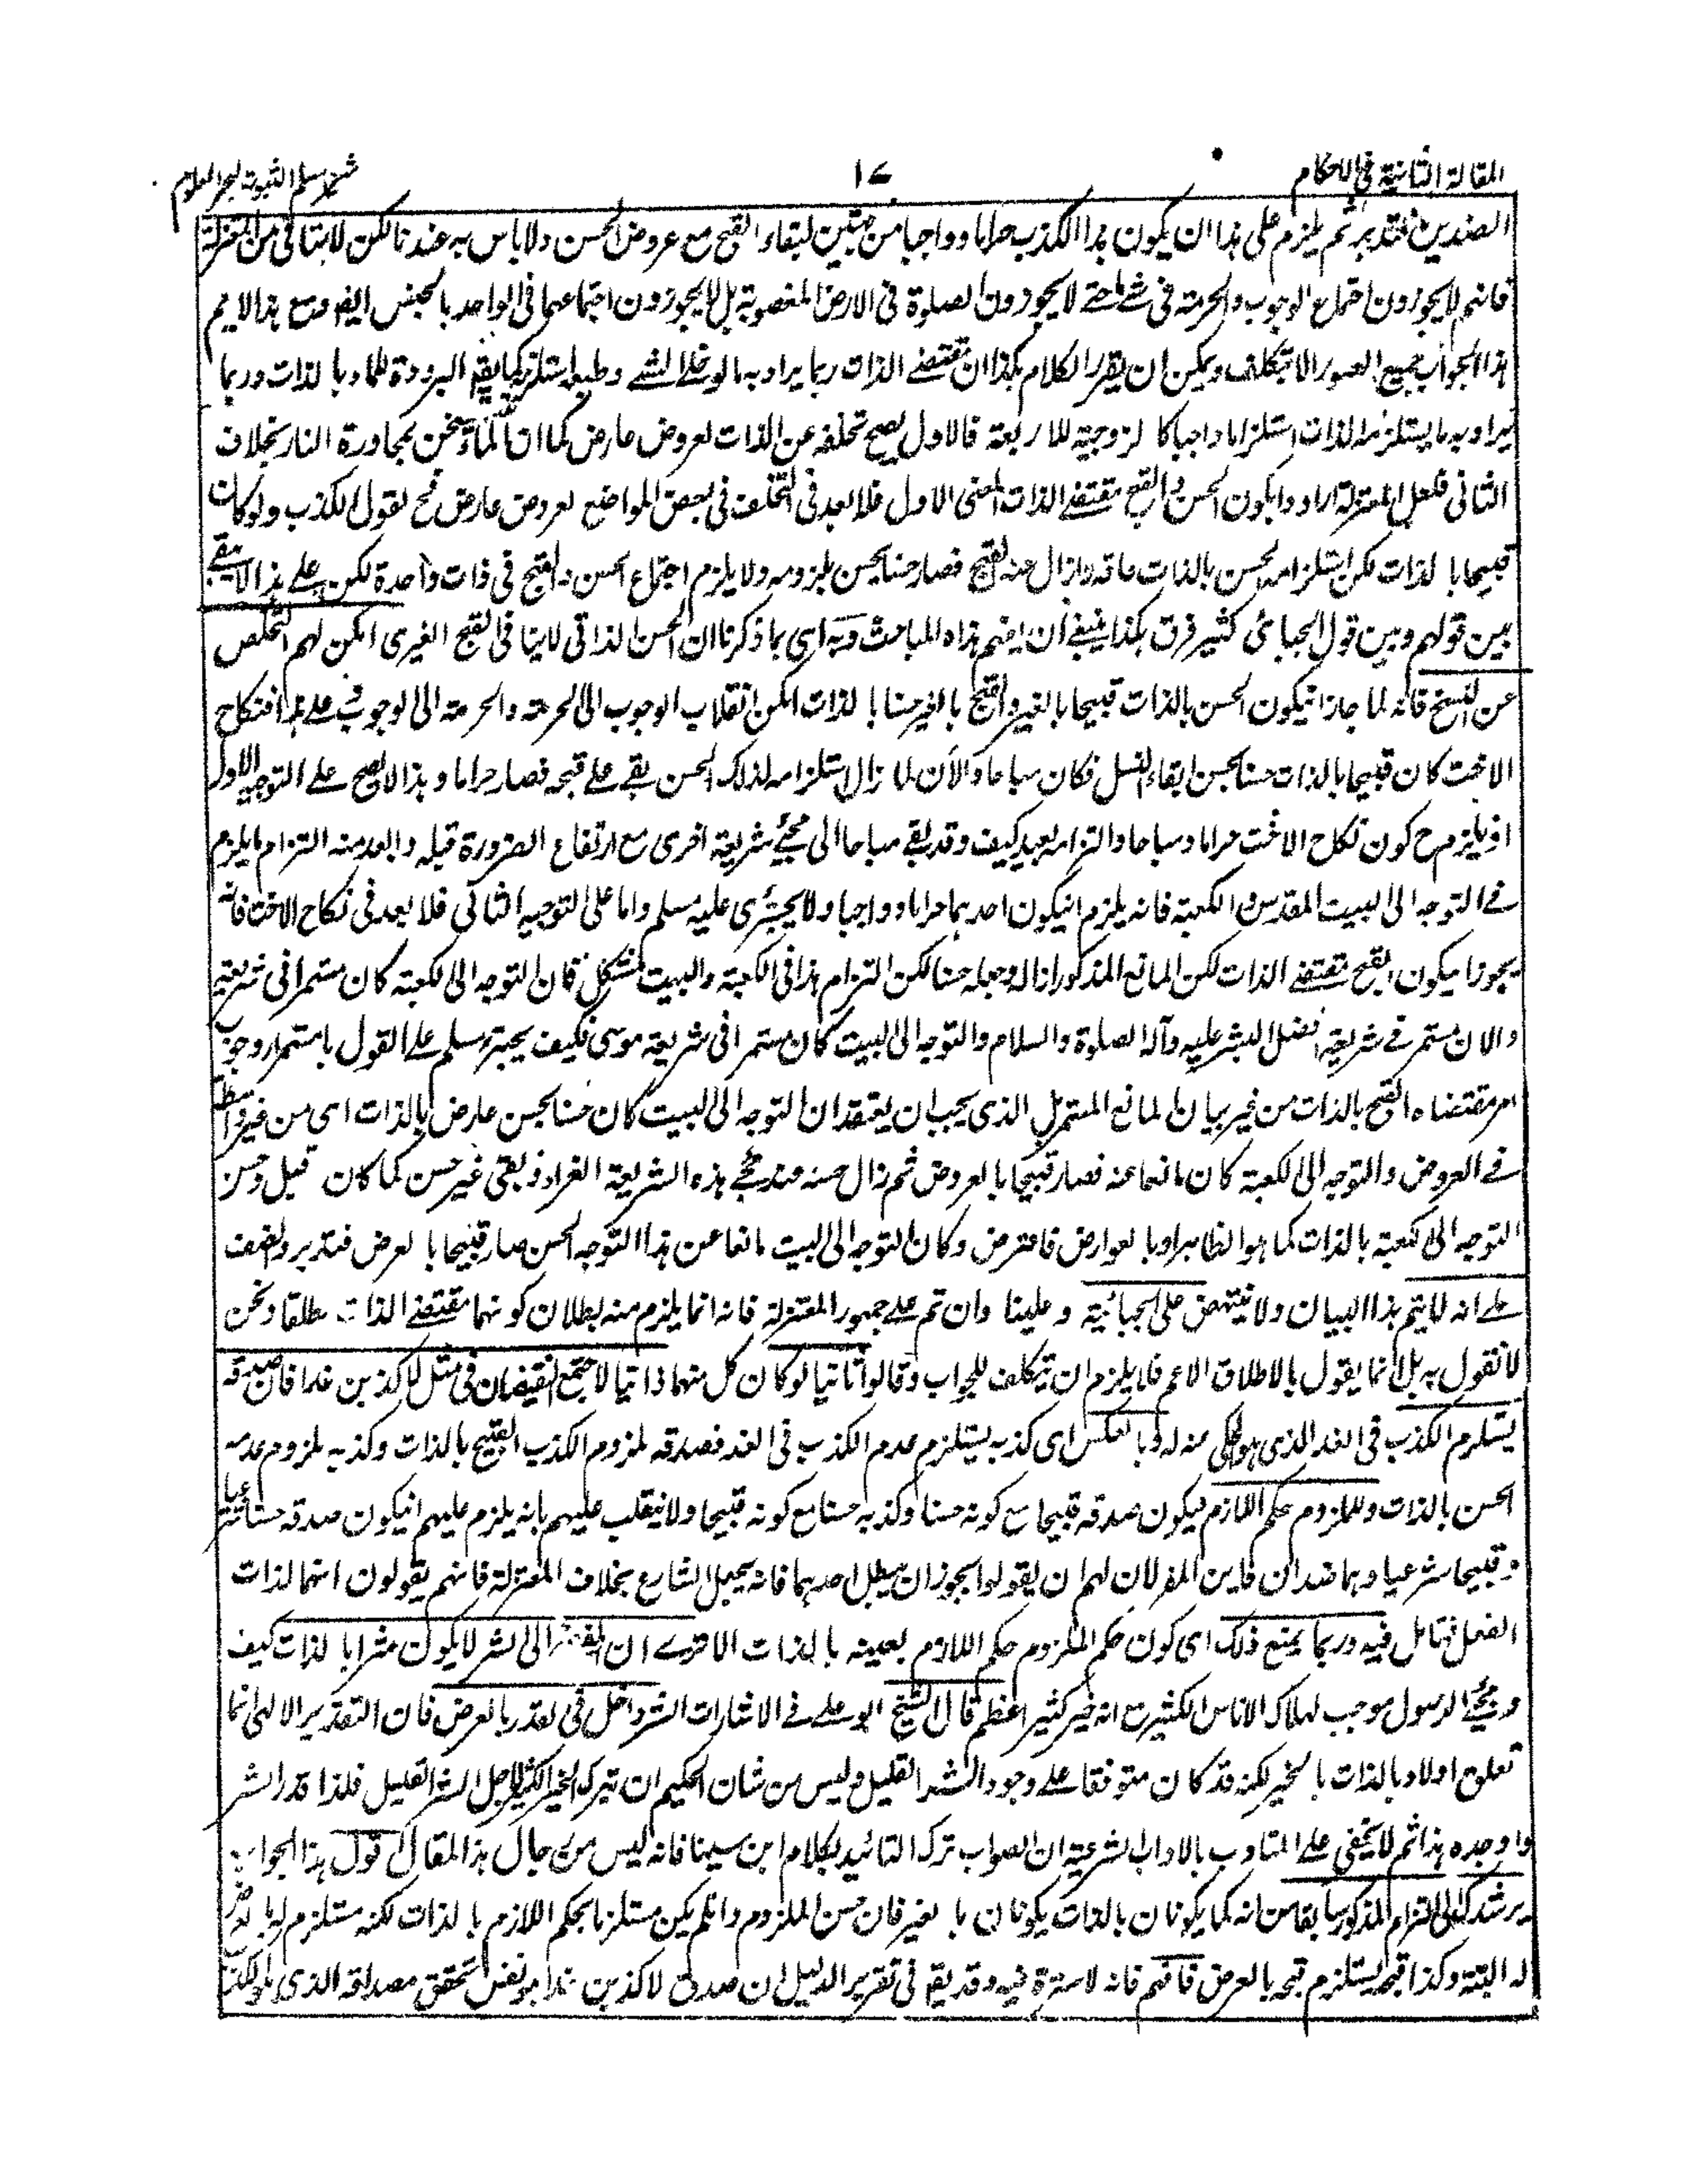 المقالة الثانية فى الاحكام
١٧
شرح مسلم الثبوت لبحر العلوم
الضدين فتدبر ثم يلزم على هذا ان يكون هذا الكذب حراما و واجبا من جهتين لبقاء القبح مع عروض الحسن ولا باس به عندنا لكن لا يتاتى من المعتزلة
فانهم لا يجوزون اجتماع الوجوب والحرمة فى شئ حتى لا يجوزون الصلوة فى الارض المغصوبة بل لا يجوزون اجتماعهما فى الواحد بالجنس ايضا ومع هذا لا يتم
هذا الجواب بجميع الصور الا بتكلف ويمكن ان يقرر الكلام هكذا ان مقتضى الذات ربما يراد به ما لو خلى الشئ وطبعه استلزمه كما يقم البرودة للماء بالذات وربما
يراد به ما يستلزمه الذات استلزاما واجبا كالزوجية للاربعة فالاول يصح تخلفه عن الذات لعروض عارض كما ان الماء يسخن بمجاورة النار بخلاف
الثانى فلعل المعتزلة ارادوا بكون الحسن والقبح مقتضى الذات المعنى الاول فلا بعد فى التخلف فى بعض المواضع لعروض عارض فح لقول الكذب ولو كان
قبيحا بالذات لكن استلزامه الحسن بالذات عاقه وازال عنه القبح فصار حسنا بحسن ملزومه ولا يلزم اجتماع الحسن والقبح فى ذات واحدة لكن على هذا لا يبقى
بين قولهم وبين قول الجبائى كثير فرق هكذا ينبغى ان يفهم هذه المباحث وبه اى بما ذكرنا ان الحسن الذاتى لا ينافى القبح الغيرى امكن لهم التخلص
عن النسخ فانه لما جاز ان يكون الحسن بالذات قبيحا بالغير والقبيح بالغير حسنا بالذات امكن انقلاب الوجوب الى الحرمة والحرمة الى الوجوب فعلى هذا فنكاح
الاخت كان قبيحا بالذات حسنا بحسن ابقاء النسل فكان مباحا والآن لما زال استلزامه لذلك الحسن بقى على قبحه فصار حراما وهذا لا يصح على التوجيه الاول
اذ يلزم ح كون نكاح الاخت حراما ومباحا والتزامه بعيد كيف وقد بقى مباحا الى مجئ شريعة اخرى مع ارتفاع الضرورة قبله وابعد منه التزام ما يلزم
فى التوجه الى البيت المقدس والكعبة فانه يلزم ان يكون احدهما حراما و واجبا ولا يجترى عليه مسلم واما على التوجيه الثانى فلا بعد فى نكاح الاخت فانه
يجوز ان يكون القبح مقتضى الذات لكن المانع المذكور ازاله وجعله حسنا لكن التزام هذا فى الكعبة والبيت مشكل فان التوجه الى الكعبة كان مستمرا فى شريعة
والان مستمر فى شريعة افضل البشر عليه وآله الصلوة والسلام والتوجه الى البيت كان مستمرا فى شريعة موسى فكيف يجترى مسلم على القول باستمرار وجوب
امر مقتضاه القبح بالذات من غير بيان المانع المستمر بل الذى يجب ان يعتقد ان التوجه الى البيت كان حسنا بحسن عارض بالذات اى من غير واسطة
فى العروض والتوجه الى الكعبة كان مانعا عنه فصار قبيحا بالعروض ثم زال حسنه عند مجئ هذه الشريعة الغراء وبقى غير حسن كما كان قبل وحسن
التوجه الى الكعبة بالذات كما هو الظاهر او بالعوارض فاعترض وكان التوجه الى البيت مانعا عن هذا التوجه الحسن صار قبيحا بالعرض فتدبر وانصف
على انه لا يتم هذا البيان ولا ينتهض على الجبائية و علينا وان تم على جمهور المعتزلة فانه انما يلزم منه بطلان كونهما مقتضى الذات مطلقا ونحن
لا نقول به بل انما نقول بالاطلاق الاعم فلا يلزم ان يتكلف للجواب وقالوا ثانيا لو كان كل منهما ذاتيا لاجتمع النقيضان فى مثل لاكذبن غدا فان صدقه
يستلزم الكذب فى الغد الذى هو محكى عنه له وبالعكس اى كذبه يستلزم عدم الكذب فى الغد فصدقه ملزوم الكذب القبيح بالذات وكذبه ملزوم عدمه
الحسن بالذات وللملزوم حكم اللازم فيكون صدقه قبيحا مع كونه حسنا وكذبه حسنا مع كونه قبيحا ولا ينقلب عليهم بانه يلزم عليهم ان يكون صدقه حسنا شرعيا
وقبيحا شرعيا وهما ضدان فاين المفر لان لهم ان يقولوا يجوز ان يبطل احدهما فانه بجعل الشارع بخلاف المعتزلة فانهم يقولون انهما لذات
الفعل فتامل فيه وربما يمنع ذلك اى كون حكم الملزوم حكم اللازم بعينه بالذات الا ترى ان المفضى الى الشر لا يكون شرا بالذات كيف
ومجئ الرسول موجب لهلاك الاناس الكثير مع انه خير كثير اعظم قال الشيخ ابو على فى الاشارات الشر داخل فى القدر بالعرض فان التقدير الالهى انما
تعلق اولا وبالذات بالخير لكنه قد كان متوقفا على وجود الشر القليل وليس من شان الحكيم ان يترك الخير الكثير لاجل الشر القليل فلذا قدر الشر
واوجده هذا ثم لا يخفى على المتادب بالاداب الشرعية ان الصواب ترك التائيد بكلام ابن سينا فانه ليس من رجال هذا المقال اقول هذا الجواب
يرشدك الى التزام المذكور سابقا من انه كما يكونان بالذات يكونان بالغير فان حسن الملزوم وان لم يكن مستلزما لحكم اللازم بالذات لكنه مستلزم له بالعرض
له البتة وكذا قبحه يستلزم قبحه بالعرض فافهم فانه لا سترة فيه وقد يقم فى تقرير الدليل ان صدق لاكذبن غدا هو نفس تحقق مصداقه الذى هو